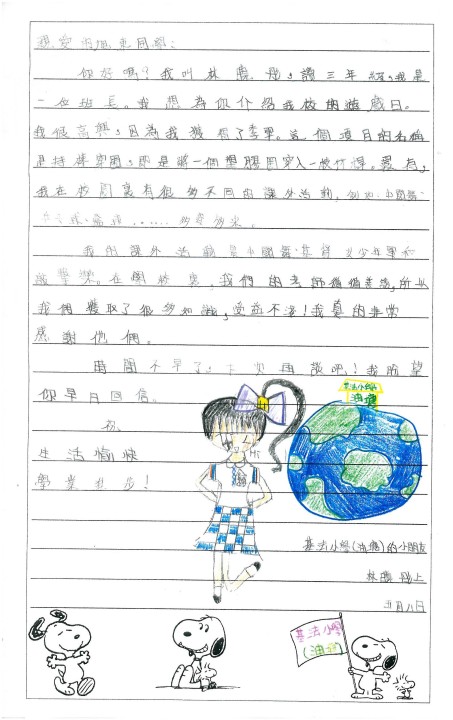 親愛的同學：
你好嗎？我叫林，讀三年級，我是
一位班長。我想為你介紹我做的遊戲日。
我很高興，因為我獲得了季軍。這個項目的名稱
是持棒穿圈，即是將一個塑膠圈穿入一枝竹棒。還有，
我在校園裏有很多不同的課外活動，例如：小圈舞、
……多姿多采。
我的課外活動是中國舞、英詩、少年軍和
。在學校裏，我們的老師循循善誘，所以
我們獲取了很多知識，受益不淺！我真的非常
感謝他們。
時間不早了，下次再談吧！我盼望
你早日回信。
祝
生活愉快
學業進步！
Hi
基法小學
油塘
基法小學（油塘）的小朋友
林上
五月八日
基法小學
（油塘）